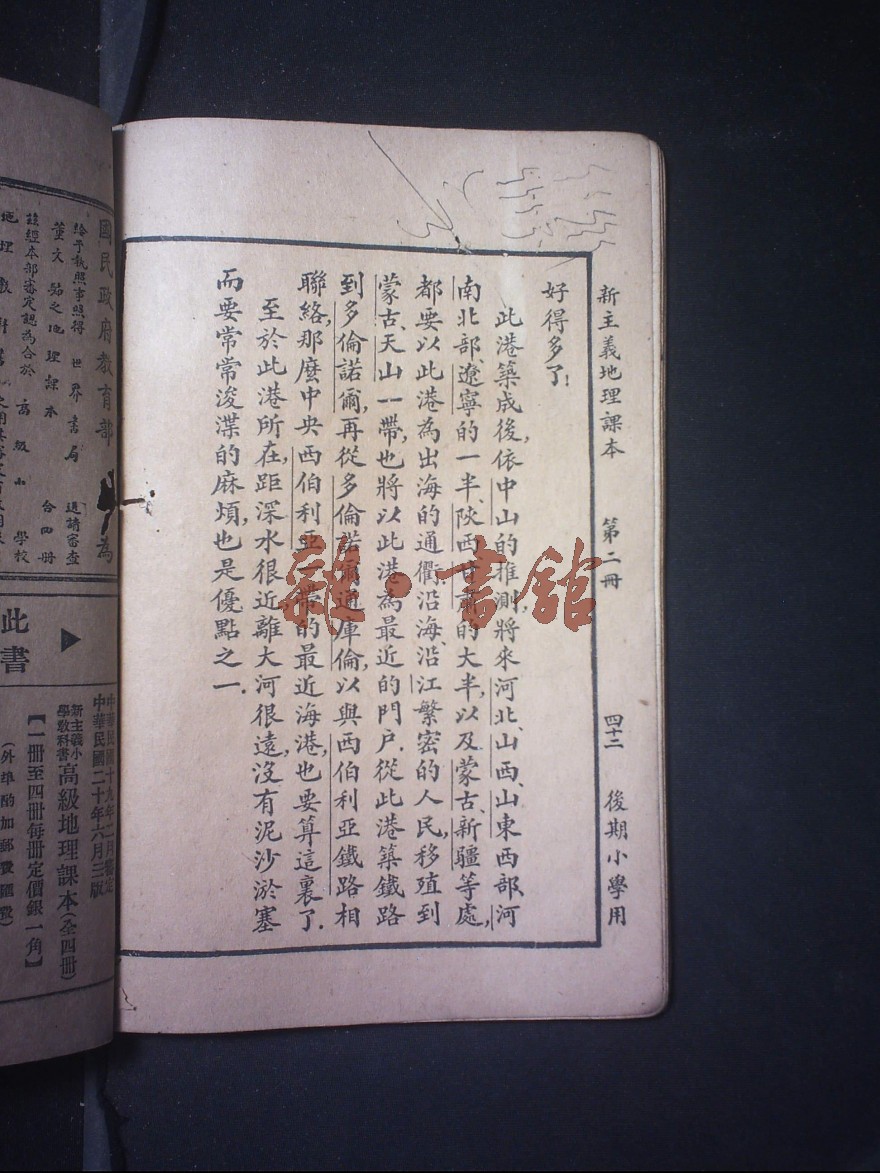 新主義地理課本 第二冊 四十二 後期小學用
好得多了!
此港築成後,依中山的推測,將來河北、山西、山東西部、河
南北部、遼寧的一半、陝西甘肅的大半,以及蒙古、新疆等處,
都要以此港為出海的通衢.沿海、沿江繁密的人民,移殖到
蒙古、天山一帶,也將以此港為最近的門戶.從此港築鐵路
到多倫諾爾,再從多倫諾爾通庫倫,以與西伯利亞鐵路相
聯絡,那麼中央西伯利亞一帶的最近海港,也要算這裏了.
至於此港所在,距深水很近,離大河很遠,沒有泥沙淤塞
而要常常浚渫的麻煩,也是優點之一.
雜·書館
國民政府教育部 為
給予執照事照得 世界書局 送請審查
董文 之地理課本 合四冊
茲經本部審定認為合於高級小學校
此書
中華民國十九年二月
中華民國二十年六月三版
新主義小學教科書高級地理課本(全四冊)
【一冊至四冊每冊定價銀一角】
(外埠酌加郵費匯費)